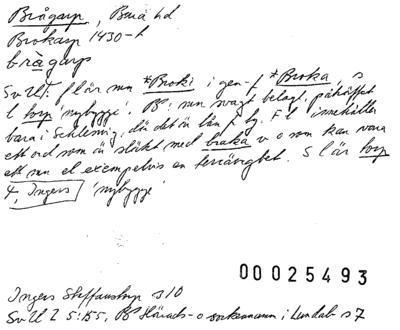 Brågarp, Bara hd
Brokarp 1430-t
bràgarp
SvUt: fl är mn *Broki i gen f *Broka, s
l torp 'nybygge'. PB: mn svagt belagt, påträffat
bara i Schleswig, där det är lån f ty. F l innehåller
ett ord som är släkt med braka v o som kan vara
ett mn el exempelvis en terrängbet. S l är torp
4, Ingers 'nybygge'
00025493
Ingers Staffanstorp s 10
SvU 2 5:155, PB Härads- o sockennamn i Lundab s 7